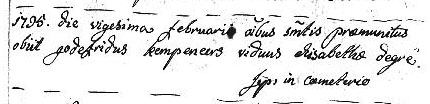 1795. die vigesima februarii oibus smtis præmunitus
obiit godefridus kempeneers viduus elisabethæ degrē
sep: in cæmeterio